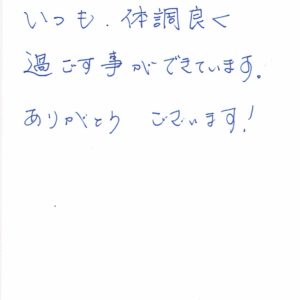 いつも、体調良く
過ごす事ができています。
ありがとう ございます!